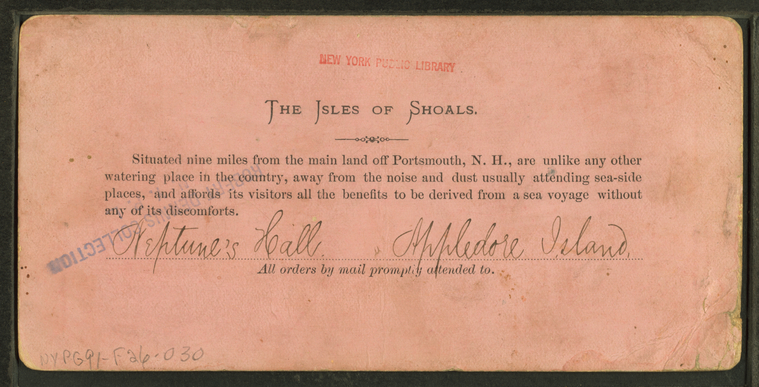 NEW YORK PUBLIC LIBRARY
THE ISLES OF SHOALS.
Situated nine miles from the main land off Portsmouth, N. H., are unlike any other
watering place in the country, away from the noise and dust usually attending sea-side
places, and affords its visitors all the benefits to be derived from a sea voyage without
any of its discomforts.
COLLECTION
Neptune's Hall. Appledore Island.
All orders by mail promptly attended to.
NYPG91-F26-030